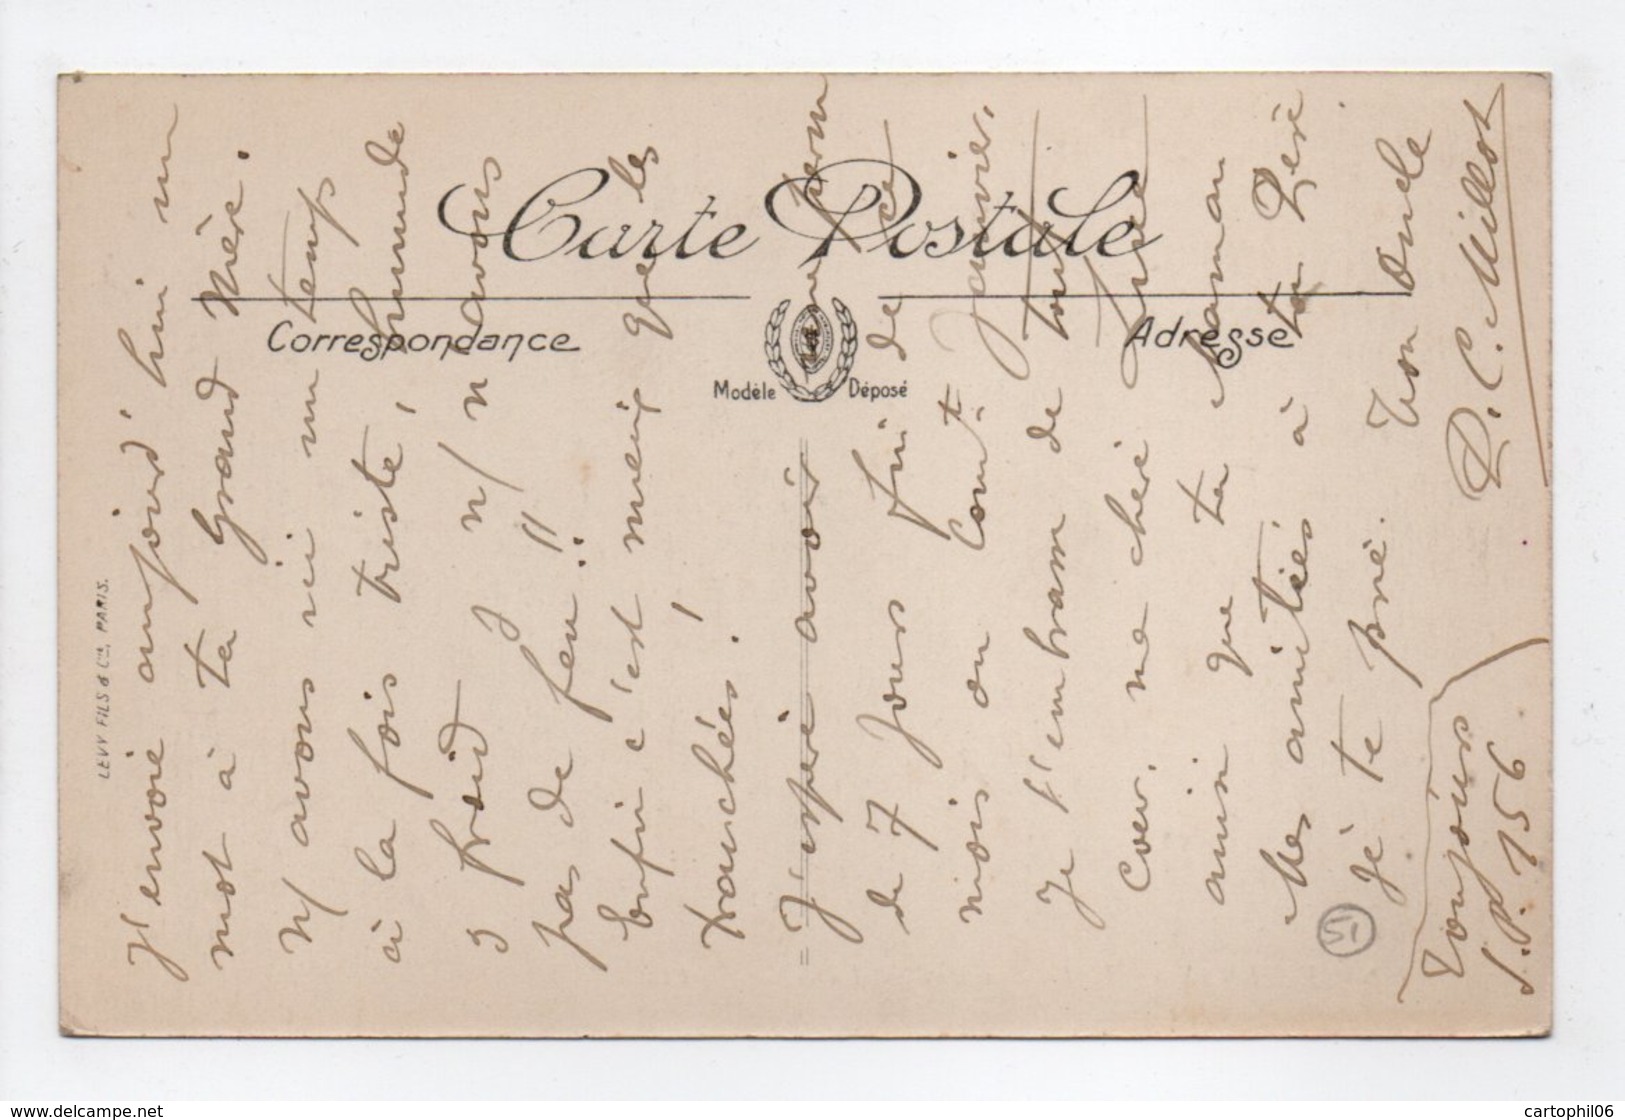 Carte Postale
Correspondance
Adresse
Modèle Déposé
LEVY FILS & Cie, PARIS.
J'envoie aujourd'hui un
mot à ta Grand Mère.
n/ avons ici un temps
à la fois triste, humide
& froid & n/ n'avons
pas de feu !!
Enfin c'est mieux que les
tranchées !
J'espère avoir une perm
de 7 jours fin de ce
mois ou comt Janvier,
Je t'embrasse de tout
coeur, ma chère
ainsi que ta Maman
Mes amitiés à ton Père
je te prie. Ton Oncle
R. C. Millot
Toujours
S.P. 156
51
delcampe.net
cartophil06